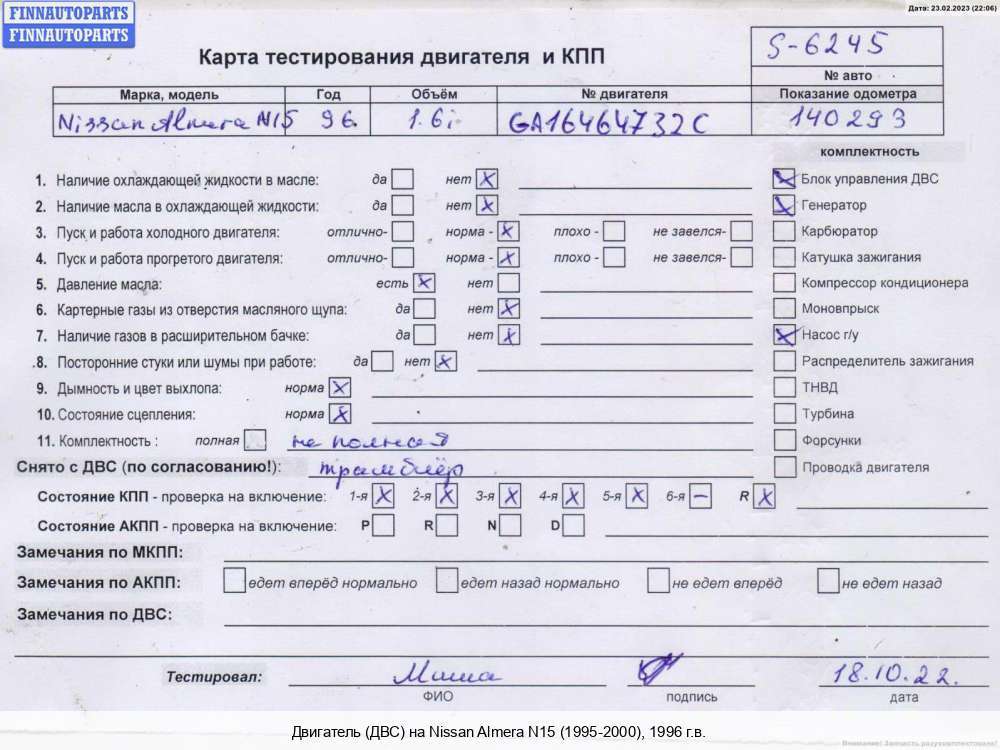 FINNAUTOPARTS
FINNAUTOPARTS
Дата: 23.02.2023 (22:06)
Карта тестирования двигателя и КПП
S-6245
№ авто
Марка, модель Год Объём № двигателя Показание одометра
Nissan Almera N15 96 1.6i GA16464732C 140293
комплектность
1. Наличие охлаждающей жидкости в масле: да нет X Блок управления ДВС
2. Наличие масла в охлаждающей жидкости: да нет X Генератор
3. Пуск и работа холодного двигателя: отлично- норма - X плохо - не завелся- Карбюратор
4. Пуск и работа прогретого двигателя: отлично- норма - X плохо - не завелся- Катушка зажигания
5. Давление масла: есть X нет Компрессор кондиционера
6. Картерные газы из отверстия масляного щупа: да нет X Моновпрыск
7. Наличие газов в расширительном бачке: да нет X Насос г/у
8. Посторонние стуки или шумы при работе: да нет X Распределитель зажигания
9. Дымность и цвет выхлопа: норма X ТНВД
10. Состояние сцепления: норма X Турбина
11. Комплектность : полная не полная Форсунки
Снято с ДВС (по согласованию!): трамблёр Проводка двигателя
Состояние КПП - проверка на включение: 1-я X 2-я X 3-я X 4-я X 5-я X 6-я — R X
Состояние АКПП - проверка на включение: P R N D
Замечания по МКПП:
Замечания по АКПП: едет вперёд нормально едет назад нормально не едет вперёд не едет назад
Замечания по ДВС:
Тестировал: Миша 18.10.22.
ФИО подпись дата
Двигатель (ДВС) на Nissan Almera N15 (1995-2000), 1996 г.в.
Внимание! Запчасть разукомплектована!